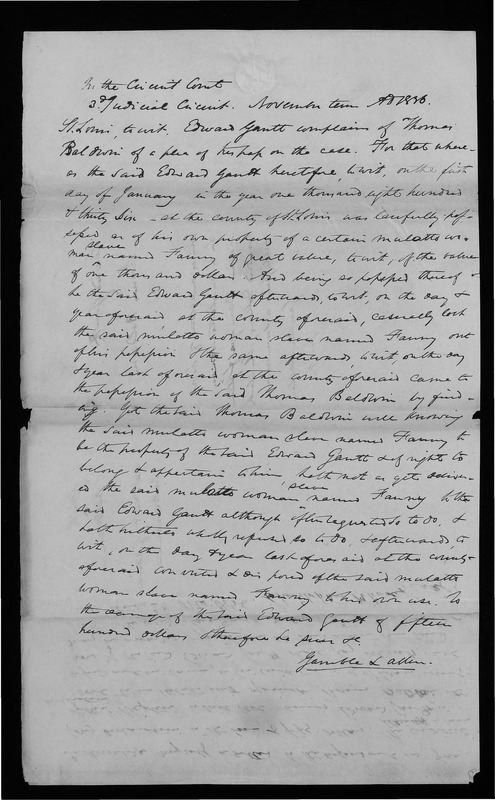 In the Circuit Court
3d Judicial Circuit. November term AD 1836.
St. Louis, to wit. Edward Gantt complains of Thomas
Baldwin of a plea of trespass on the case. For that where-
as the said Edward Gantt heretofore to wit, on the first
day of January in the year one thousand eight hundred
& thirty six - at the county of St. Louis was lawfully pos-
sessed as of his own property of a certain mulatto wo-
man slave named Fanny of great value, to wit, of the value
of one thousand dollars And being so possessed thereof
he the said Edward Gantt afterwards, to wit, on the day &
year aforesaid at the county aforesaid, casually lost
the said mulatto woman slave named Fanny out
of his possession & the same afterwards, to wit on the day
& year last aforesaid at the county aforesaid came to
the possession of the said Thomas Baldwin by find-
ing. Yet the said Thomas Baldwin well knowing
the said mulatto woman slave named Fanny to
be the property of the said Edward Gantt & of right to
belong & appertain to him hath not as yet deliver-
ed the said mulatto woman slave named Fanny to the
said Edward Gantt although often requested so to do, &
hath hitherto wholly refused so to do, & afterwards, to
wit, on the day & year last aforesaid at the county
aforesaid converted & disposed of the said mulatto
woman slave named Fanny to his own use. To
the damage of the said Edward Gantt of fifteen
hundred dollars & therefore he sues &c.
Gamble & Allen.